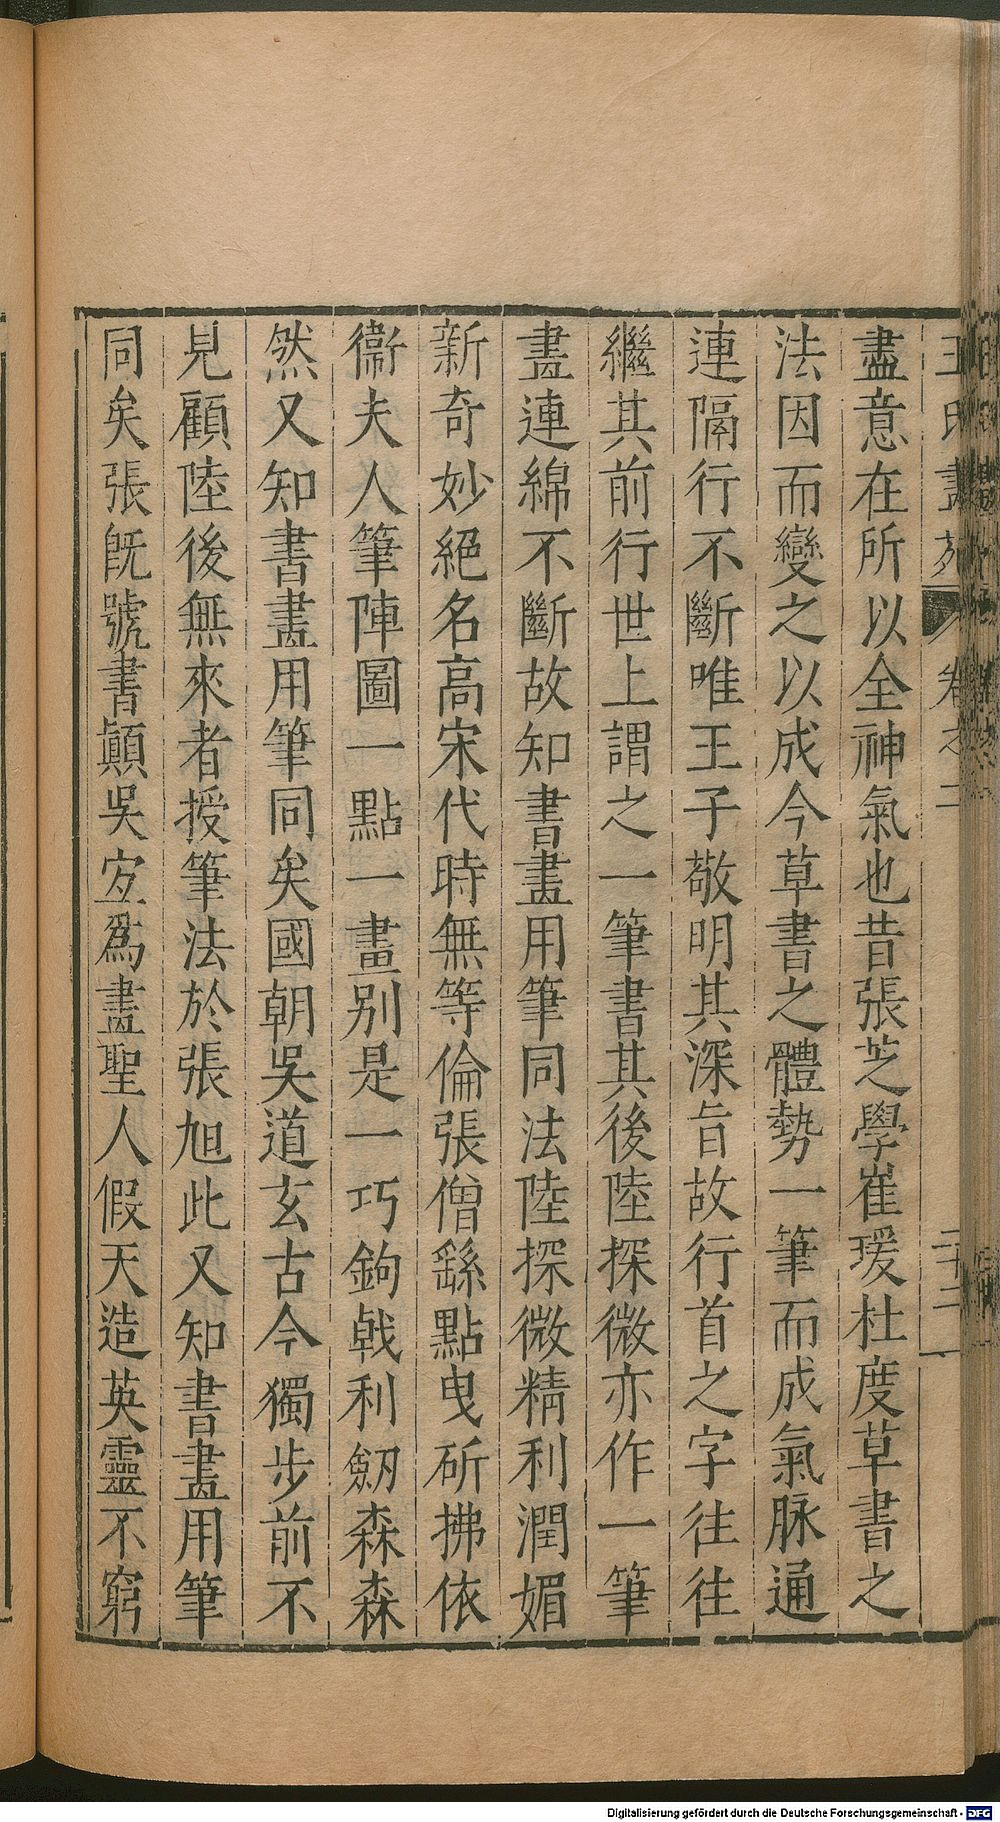 王氏畫苑 卷之二 二十二
盡意在所以全神氣也昔張芝學崔瑗杜度草書之
法因而變之以成今草書之體勢一筆而成氣脉通
連隔行不斷唯王子敬明其深旨故行首之字往往
繼其前行世上謂之一筆書其後陸探微亦作一筆
畫連綿不斷故知書畫用筆同法陸探微精利潤媚
新奇妙絕名高宋代時無等倫張僧繇點曳斫拂依
衞夫人筆陣圖一點一畫别是一巧鉤戟利劒森森
然又知書畫用筆同矣國朝吳道玄古今獨步前不
見顧陸後無來者授筆法於張旭此又知書畫用筆
同矣張旣號書顚吳宐爲畫聖人假天造英靈不窮
Digitalisierung gefördert durch die Deutsche Forschungsgemeinschaft - DFG